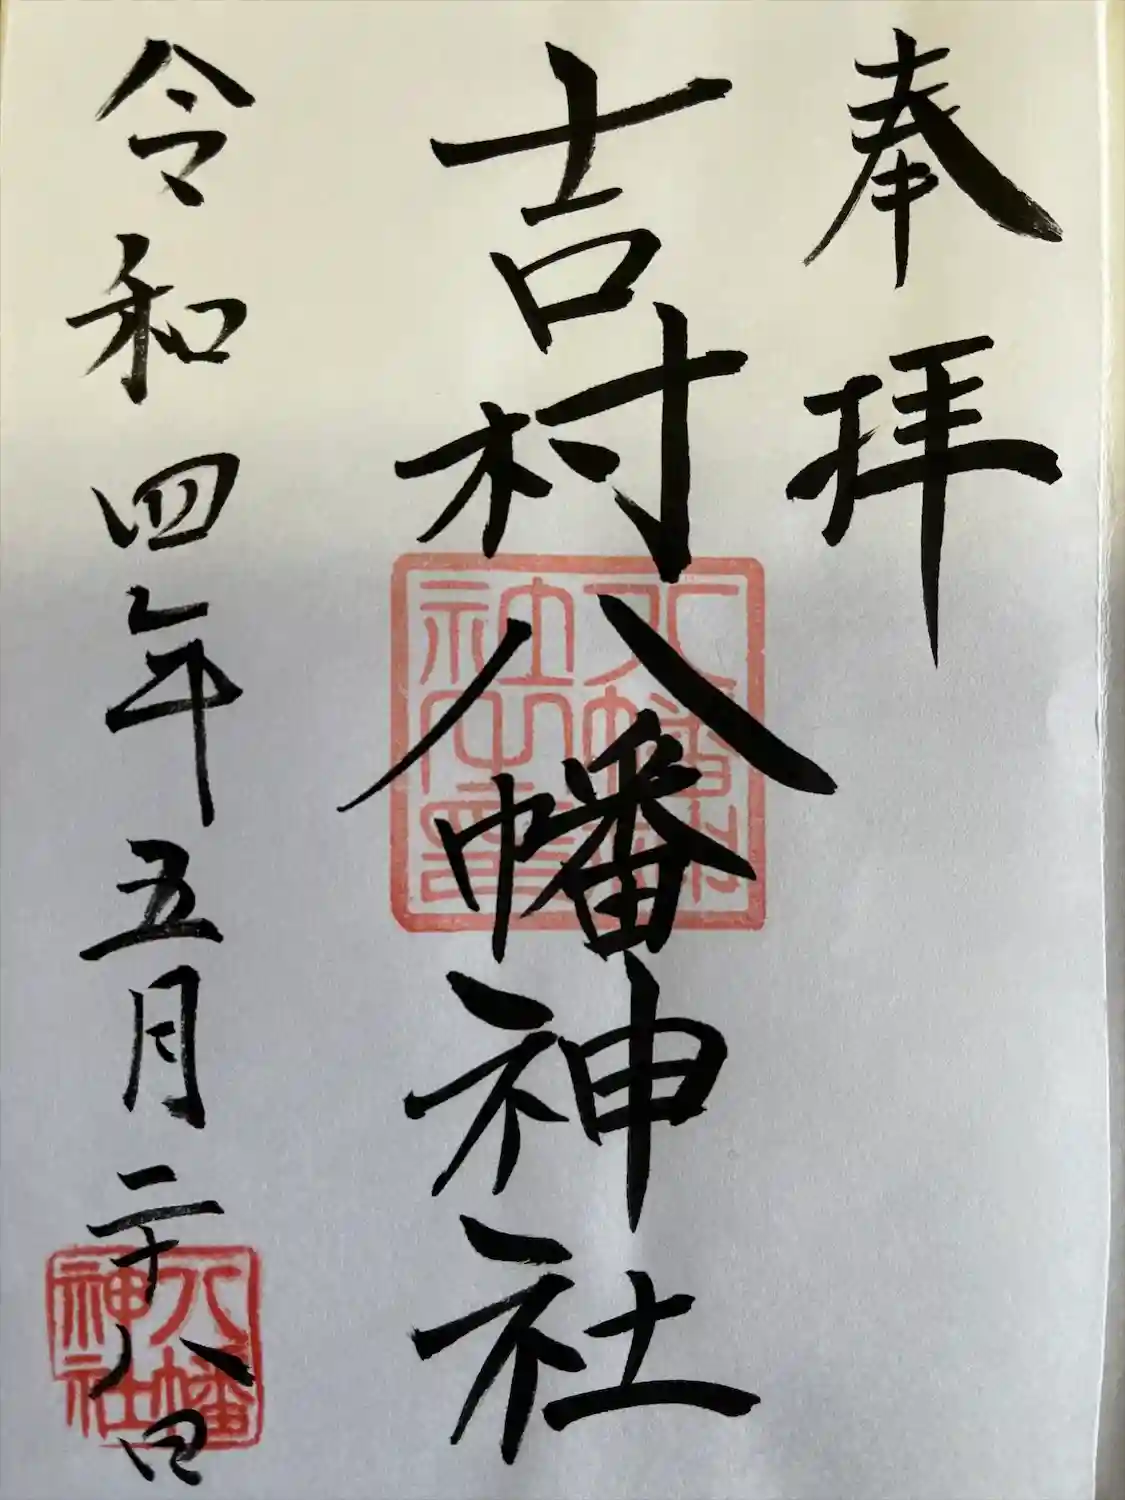 奉拝
吉村八幡神社
令和四年五月二十八日
八幡神社